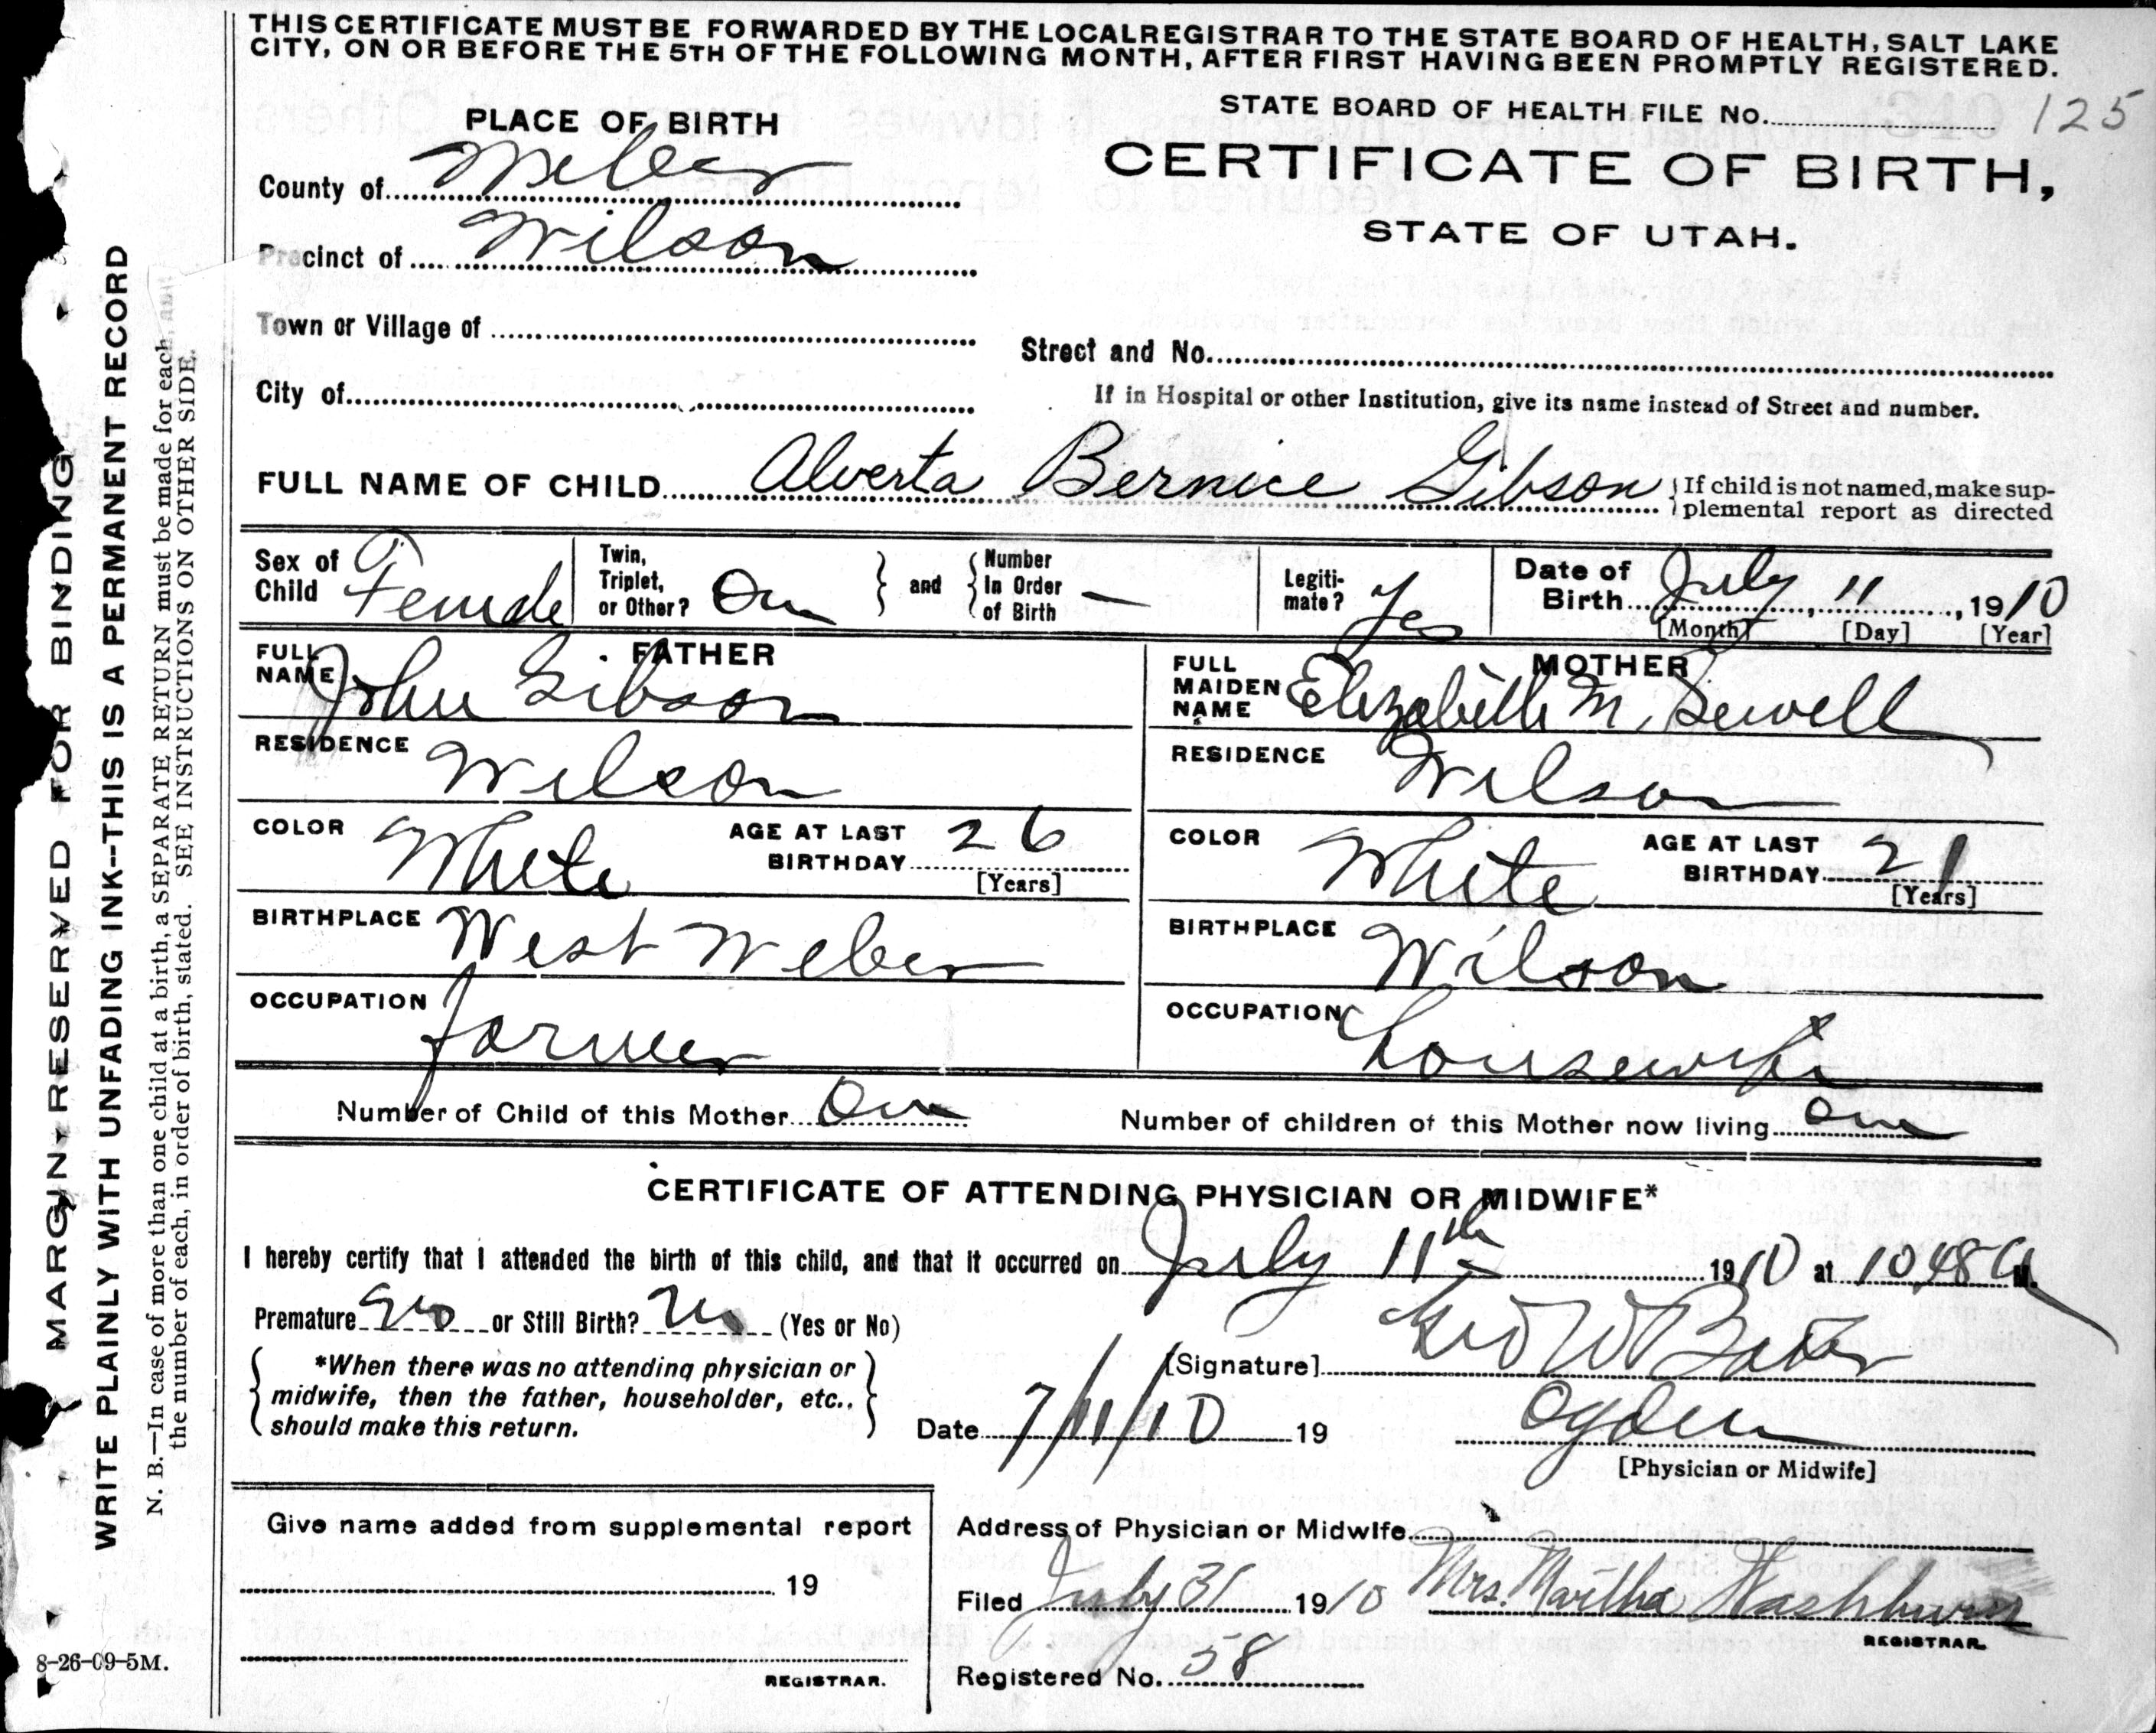 THIS CERTIFICATE MUST BE FORWARDED BY THE LOCAL REGISTRAR TO THE STATE BOARD OF HEALTH, SALT LAKE
CITY, ON OR BEFORE THE 5TH OF THE FOLLOWING MONTH, AFTER FIRST HAVING BEEN PROMPTLY REGISTERED.
STATE BOARD OF HEALTH FILE NO. 125
CERTIFICATE OF BIRTH,
STATE OF UTAH.
PLACE OF BIRTH
County of Weber
Precinct of Wilson
Town or Village of
City of
Street and No.
If in Hospital or other Institution, give its name instead of Street and number.
FULL NAME OF CHILD Alverta Bernice Gibson { If child is not named, make sup-
plemental report as directed
Sex of Child Female
Twin, Triplet, or Other? One } and { Number In Order of Birth —
Legiti-mate? Yes
Date of Birth July, 11, 1910
[Month] [Day] [Year]
FATHER
FULL NAME John Gibson
RESIDENCE Wilson
COLOR White AGE AT LAST BIRTHDAY 26 [Years]
BIRTHPLACE West Weber
OCCUPATION farmer
MOTHER
FULL MAIDEN NAME Elizabeth M. Sewell
RESIDENCE Wilson
COLOR White AGE AT LAST BIRTHDAY 21 [Years]
BIRTHPLACE Wilson
OCCUPATION housewife
Number of Child of this Mother One Number of children of this Mother now living one
CERTIFICATE OF ATTENDING PHYSICIAN OR MIDWIFE*
I hereby certify that I attended the birth of this child, and that it occurred on July 11th 1910 at 10,48 A M.
Premature No or Still Birth? No (Yes or No)
{ *When there was no attending physician or
midwife, then the father, householder, etc.,
should make this return. }
[Signature] Geo W Baker
Date 7/11/10 19 Ogden
[Physician or Midwife]
Give name added from supplemental report
19
REGISTRAR.
Address of Physician or Midwife
Filed July 31 1910 Mrs. Martha Washburn
REGISTRAR.
Registered No. 58
MARGIN RESERVED FOR BINDING
WRITE PLAINLY WITH UNFADING INK--THIS IS A PERMANENT RECORD
N. B.—In case of more than one child at a birth, a SEPARATE RETURN must be made for each, and
the number of each, in order of birth, stated. SEE INSTRUCTIONS ON OTHER SIDE.
8-26-09-5M.